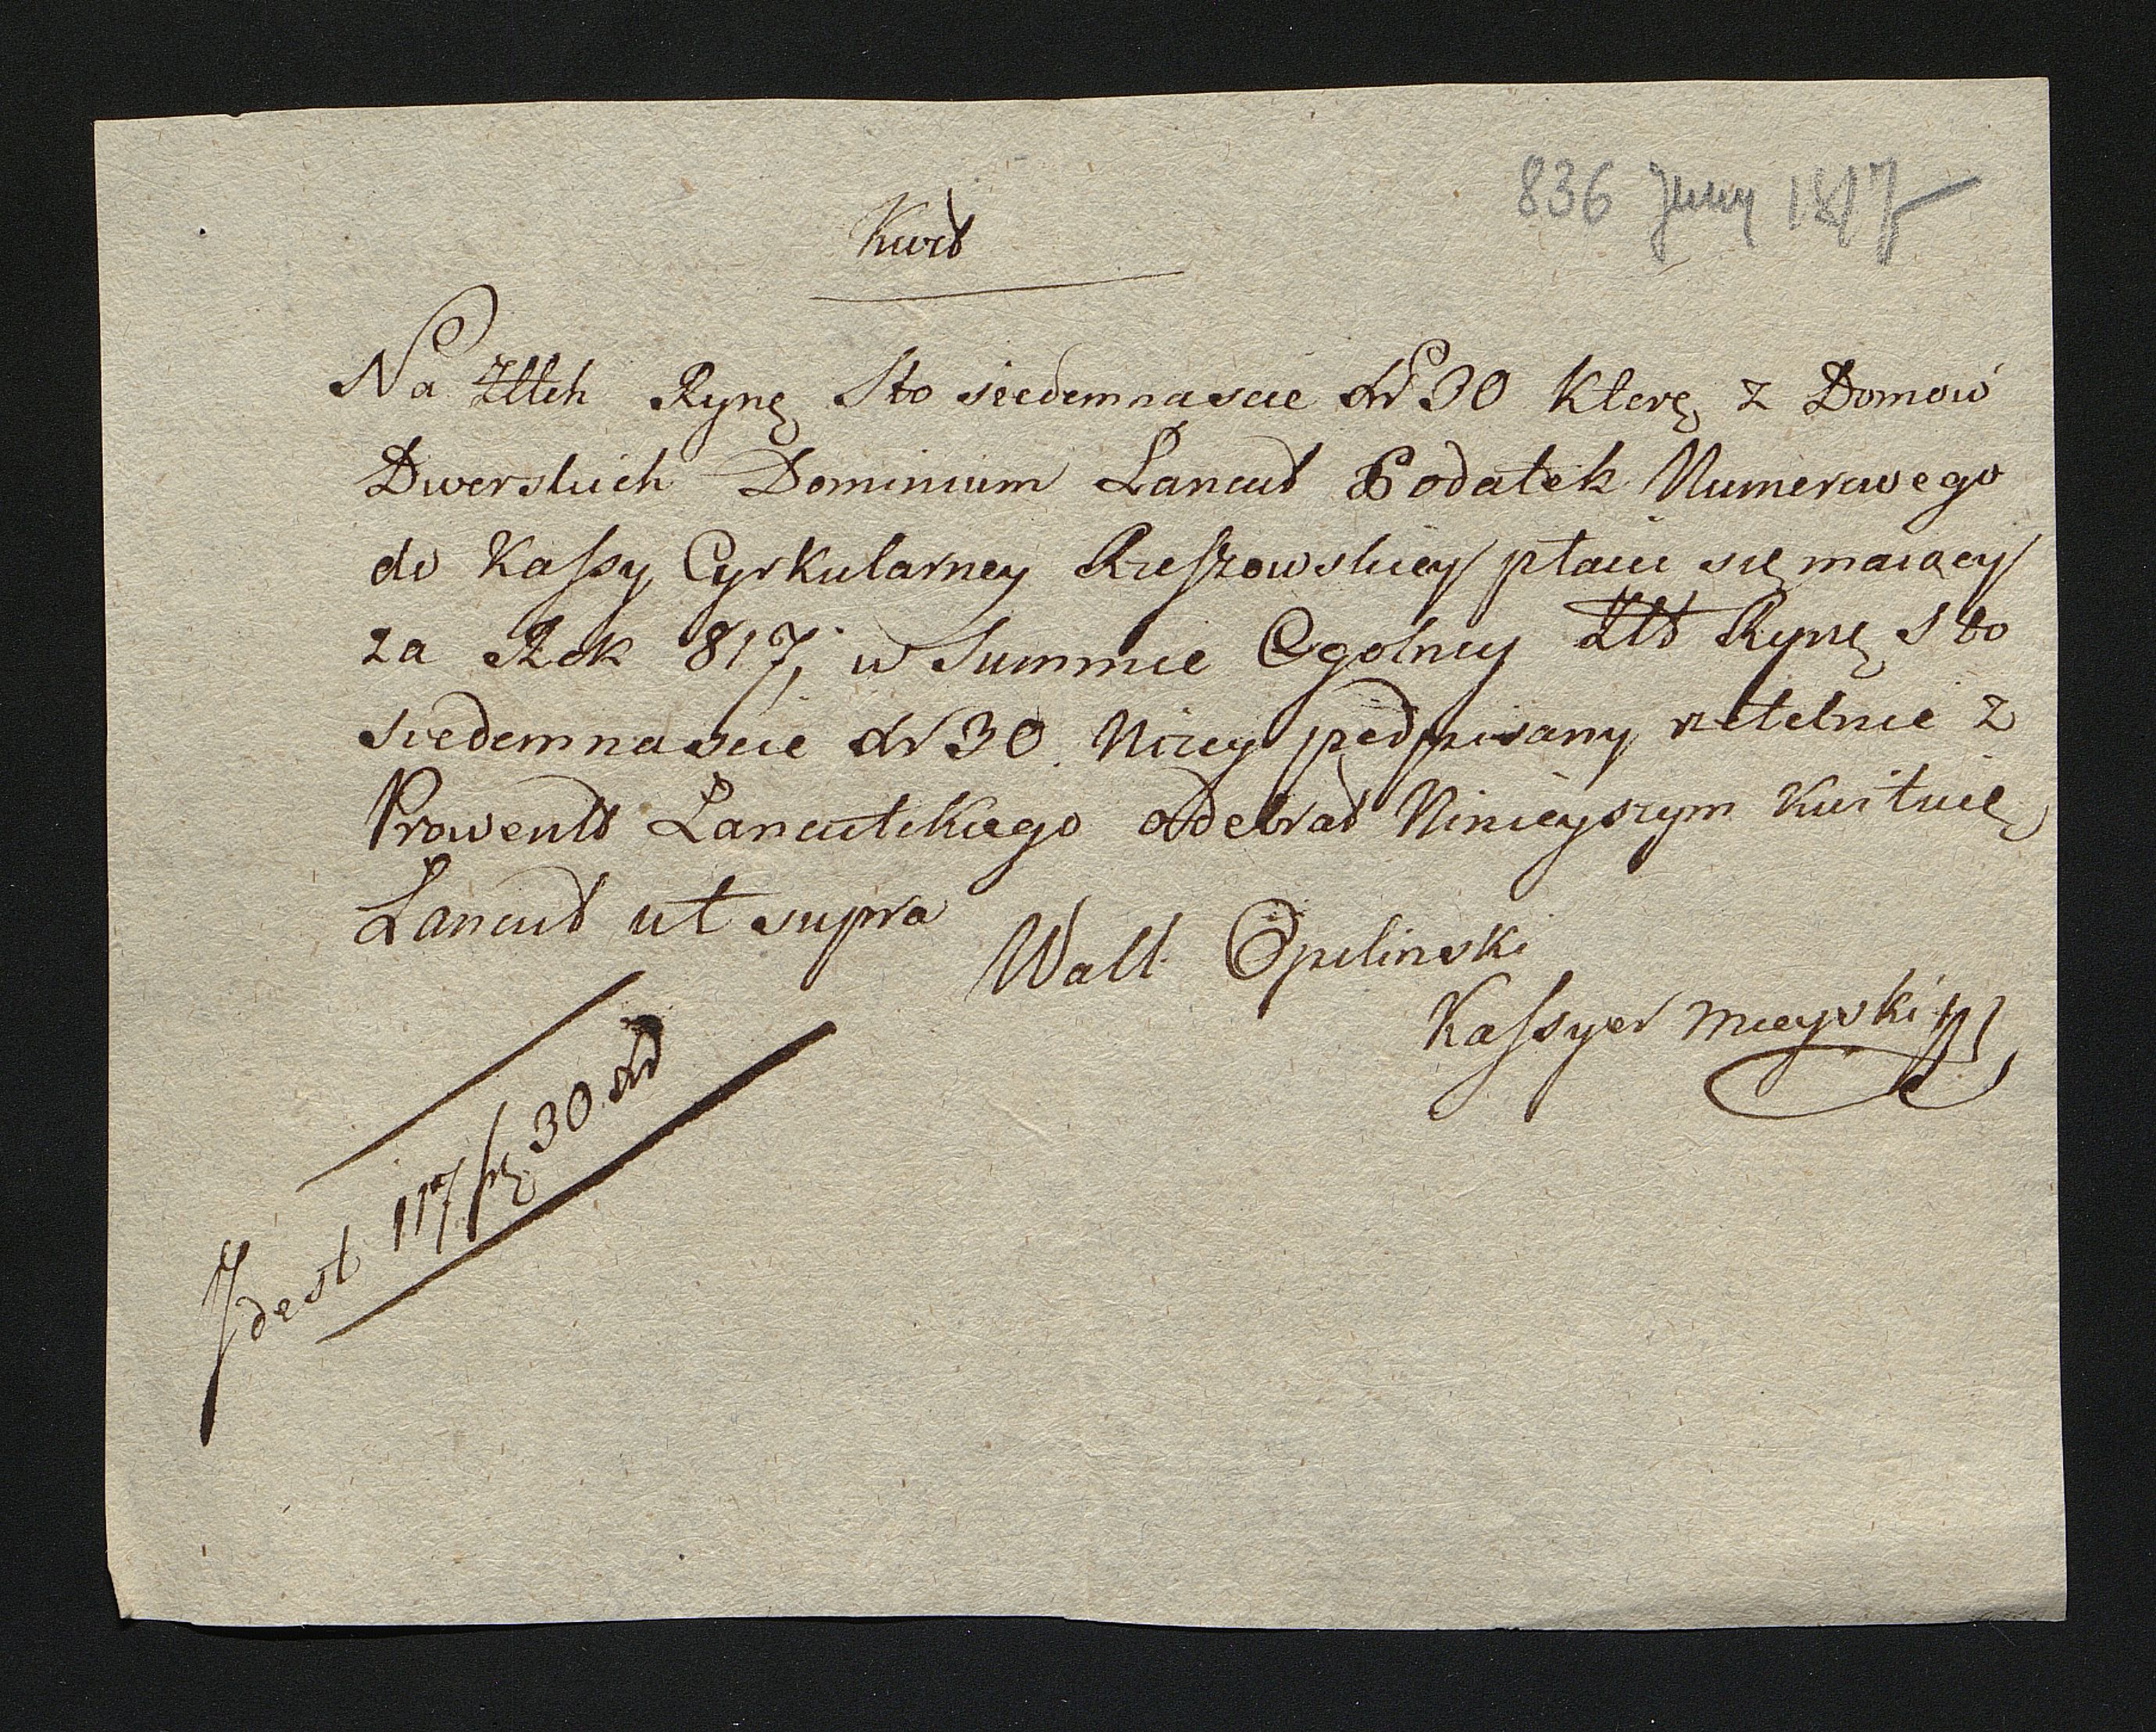 836 Juny 1817
Kwit
Na Złłch Rynę Sto siedemnascie xr 30 Ktorę z Domow
Dworskich Dominium Łancut Podatek Numerowego
do Kassy Cyrkularney Rzeszowskiey płacic się maiący
za Rok 817, w Summie Ogolney Złt Rynę Sto
siedemnascie xr 30 Nizey podpisany rzetelnie z
Prowentu Łancutskiego odebrał Ninieyszym kwituię
Łancut ut supra
Wall. Opulinski
Kassyer mieyski
Idest 117 frę 30 xr